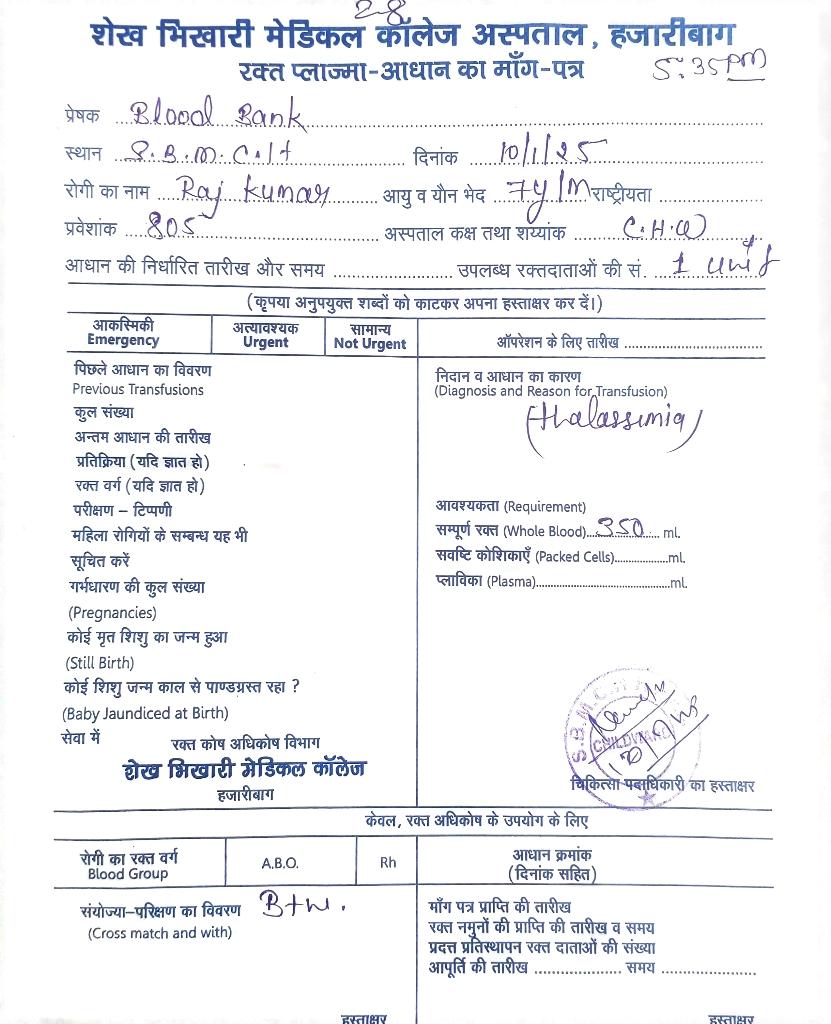 2-8
शेख भिखारी मेडिकल कॉलेज अस्पताल, हजारीबाग
रक्त प्लाज्मा-आधान का माँग-पत्र 5:35PM
प्रेषक Blood Bank
स्थान S.B.M.C.H दिनांक 10/1/25
रोगी का नाम Raj Kumar आयु व यौन भेद 7y/M राष्ट्रीयता
प्रवेशांक 805 अस्पताल कक्ष तथा शय्यांक C.H.W
आधान की निर्धारित तारीख और समय उपलब्ध रक्तदाताओं की सं. 1 unit
(कृपया अनुपयुक्त शब्दों को काटकर अपना हस्ताक्षर कर दें।)
आकस्मिकी अत्यावश्यक सामान्य
Emergency Urgent Not Urgent ऑपरेशन के लिए तारीख
पिछले आधान का विवरण निदान व आधान का कारण
Previous Transfusions (Diagnosis and Reason for Transfusion)
कुल संख्या (thalassimia)
अन्तम आधान की तारीख
प्रतिक्रिया (यदि ज्ञात हो)
रक्त वर्ग (यदि ज्ञात हो)
परीक्षण – टिप्पणी आवश्यकता (Requirement)
महिला रोगियों के सम्बन्ध यह भी सम्पूर्ण रक्त (Whole Blood) 350 ml.
सूचित करें सवष्टि कोशिकाएँ (Packed Cells) ml.
गर्भधारण की कुल संख्या प्लाविका (Plasma) ml.
(Pregnancies)
कोई मृत शिशु का जन्म हुआ
(Still Birth)
कोई शिशु जन्म काल से पाण्डग्रस्त रहा ?
(Baby Jaundiced at Birth) S.B.M.C.H
सेवा में रक्त कोष अधिकोष विभाग CHILDWARD
शेख भिखारी मेडिकल कॉलेज
हजारीबाग चिकित्सा पदाधिकारी का हस्ताक्षर
केवल, रक्त अधिकोष के उपयोग के लिए
रोगी का रक्त वर्ग A.B.O. Rh आधान क्रमांक
Blood Group (दिनांक सहित)
संयोज्या-परिक्षण का विवरण B+ve. माँग पत्र प्राप्ति की तारीख
(Cross match and with) रक्त नमुनों की प्राप्ति की तारीख व समय
प्रदत्त प्रतिस्थापन रक्त दाताओं की संख्या
आपूर्ति की तारीख समय
हस्ताक्षर हस्ताक्षर